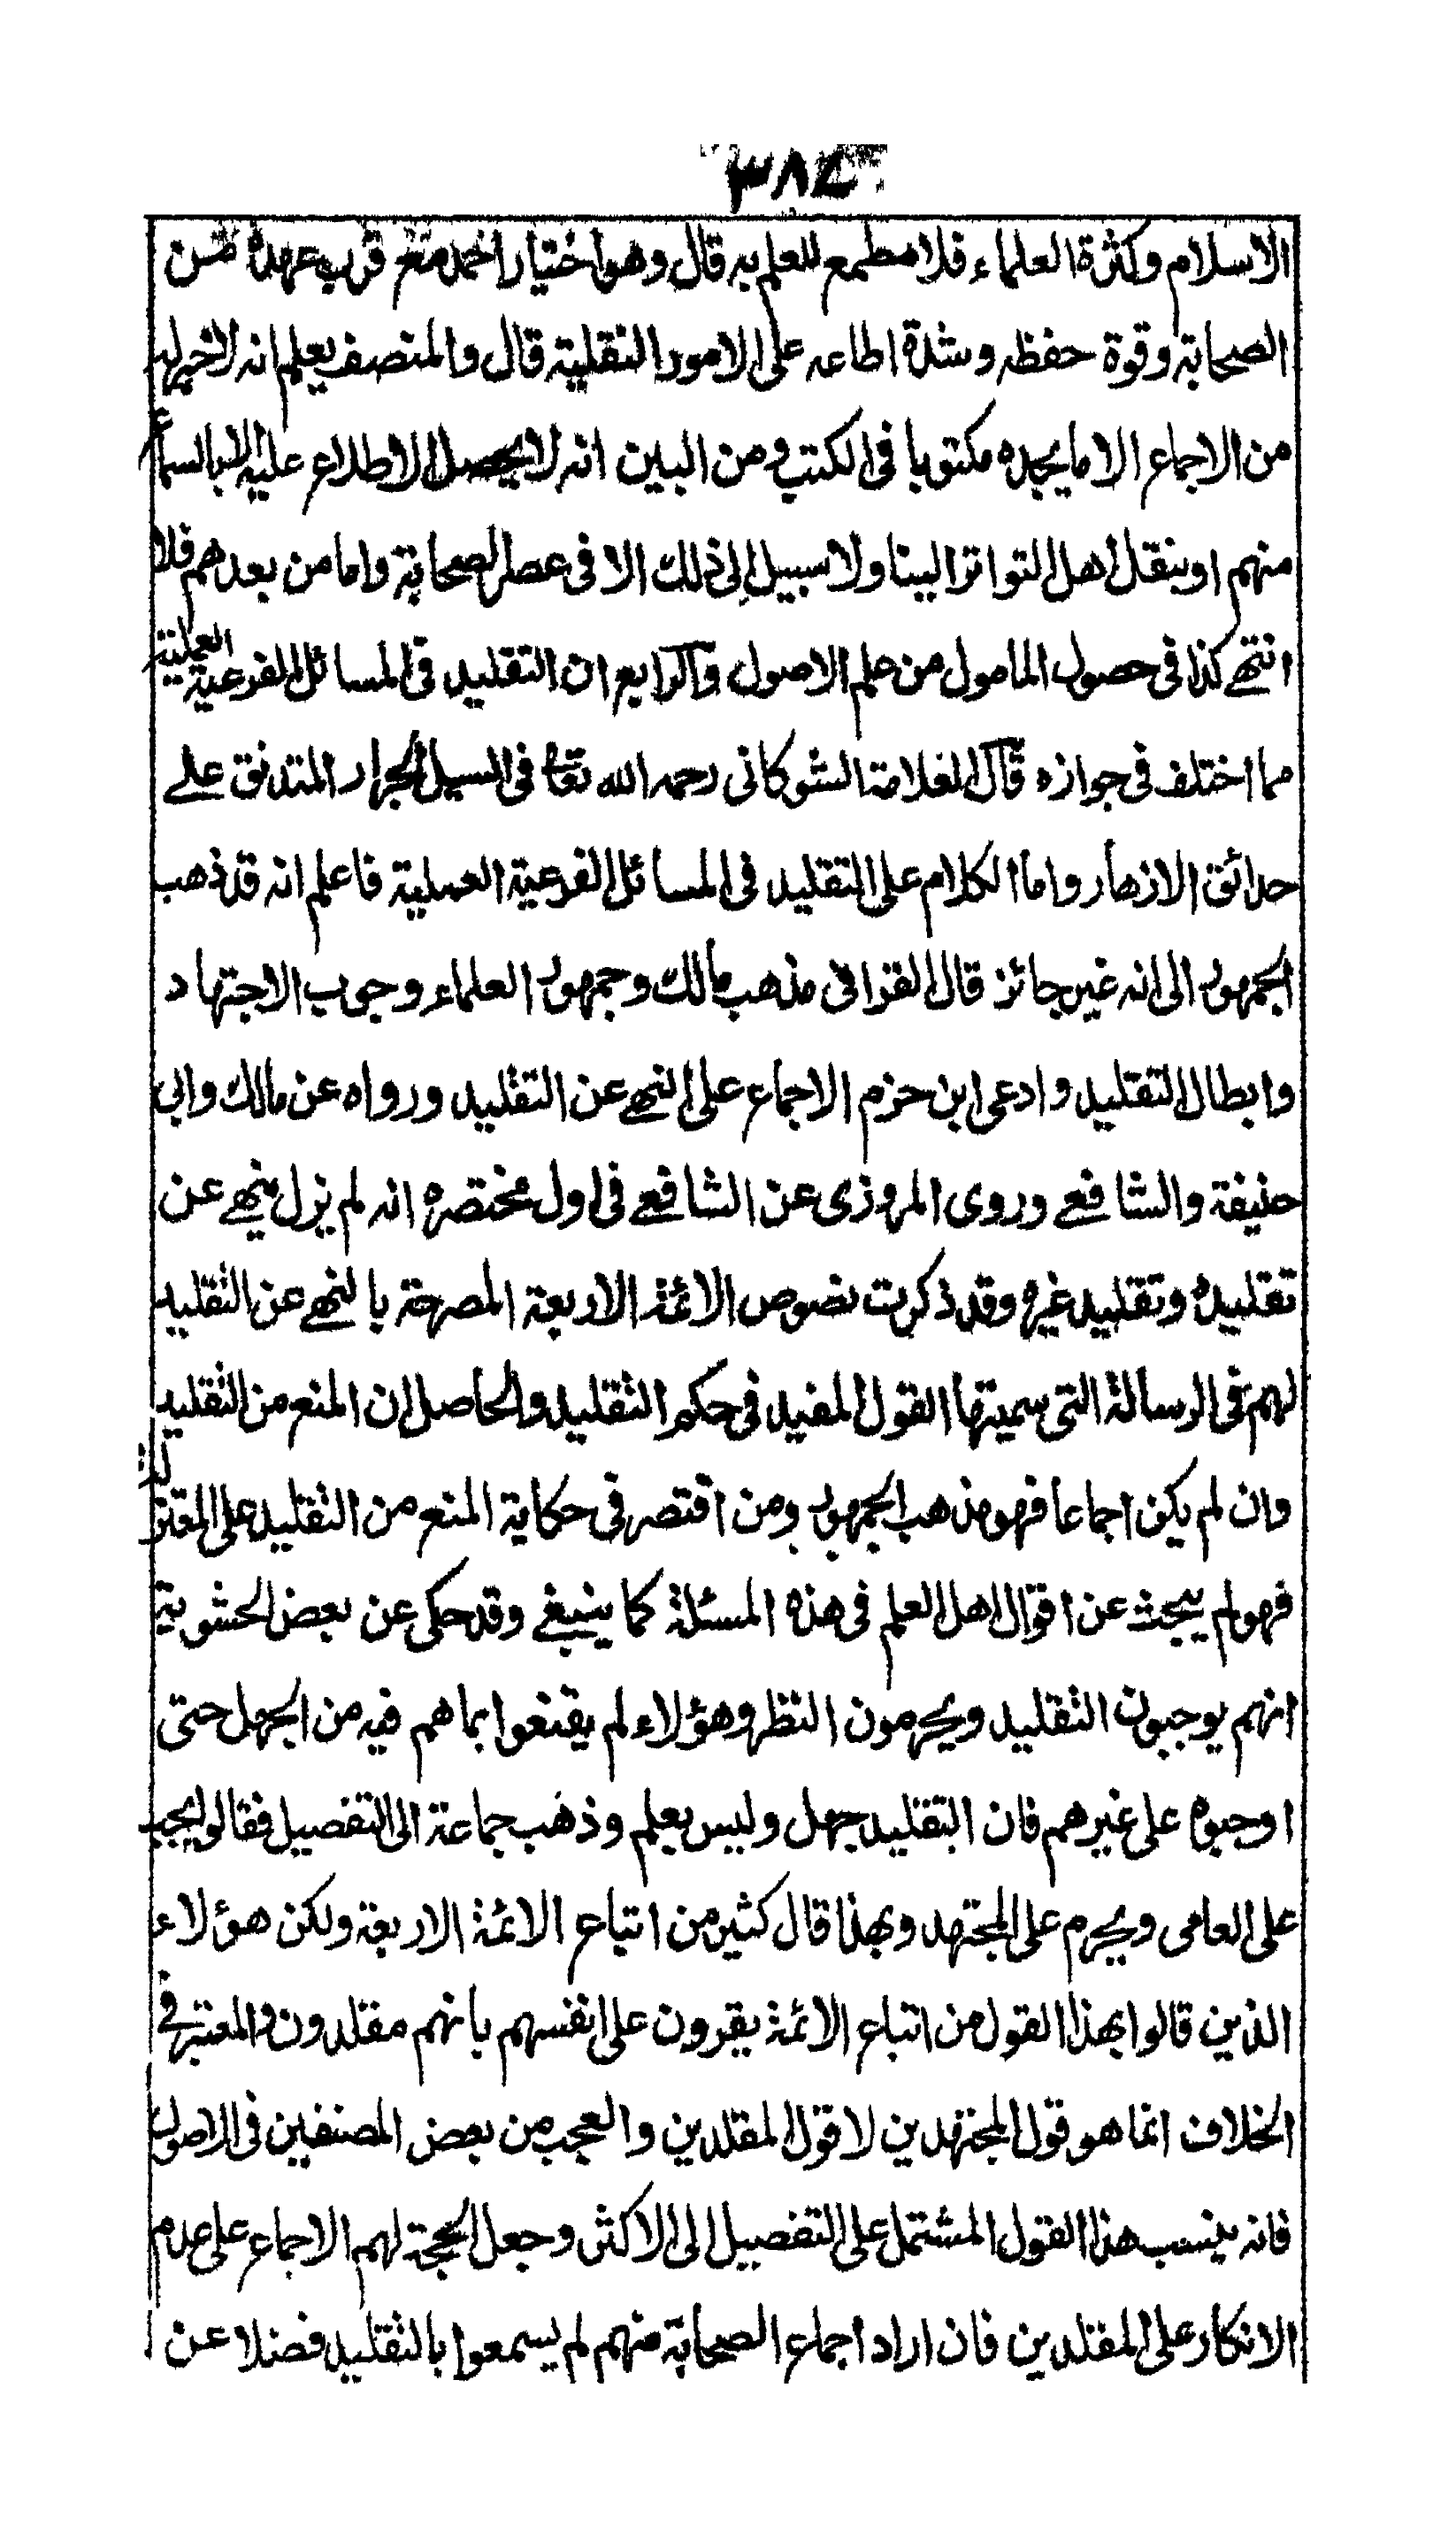 ٣٨٤
الاسلام وكثرة العلماء فلا مطمع للعلم به قال وهو اختيار احمد مع قرب عهده من
الصحابة وقوة حفظه وشدة اطاعه على الامور النقلية قال والمنصف يعلم انه لا خبر له
من الاجماع الا ما يجده مكتوبا فى الكتب ومن البين انه لا يحصل الاطلاع عليه الا بالسماع
منهم او بنقل اهل التواتر الينا ولا سبيل الى ذلك الا فى عصر الصحابة واما من بعدهم فلا
انتهى كذا فى حصول المامول من علم الاصول والرابع ان التقليد فى المسائل الفرعية العملية
مما اختلف فى جوازه قال العلامة الشوكانى رحمه الله تعالى فى السيل الجرار المتدفق على
حدائق الازهار واما الكلام على التقليد فى المسائل الفرعية العملية فاعلم انه قد ذهب
الجمهور الى انه غير جائز قال القرافى مذهب مالك وجمهور العلماء وجوب الاجتهاد
وابطال التقليد وادعى ابن حزم الاجماع على النهى عن التقليد ورواه عن مالك وابى
حنيفة والشافعى وروى المروذى عن الشافعى فى اول مختصره انه لم يزل ينهى عن
تقليده وتقليد غيره وقد ذكرت نصوص الائمة الاربعة المصرحة بالنهى عن التقليد
لهم فى الرسالة التى سميتها القول المفيد فى حكم التقليد والحاصل ان المنع من التقليد
وان لم يكن اجماعا فهو مذهب الجمهور ومن اقتصر فى حكاية المنع من التقليد على المعتزلة
فهو لم يبحث عن اقوال اهل العلم فى هذه المسئلة كما ينبغى وقد حكى عن بعض الحشوية
انهم يوجبون التقليد ويحرمون النظر وهؤلاء لم يقنعوا بما هم فيه من الجهل حتى
اوجبوه على غيرهم فان التقليد جهل وليس بعلم وذهب جماعة الى التفصيل فقالوا يجب
على العامى ويحرم على المجتهد وبهذا قال كثير من اتباع الائمة الاربعة ولكن هؤلاء
الذين قالوا بهذا القول من اتباع الائمة يقرون على انفسهم بانهم مقلدون والمعتبر فى
الخلاف انما هو قول المجتهدين لا قول المقلدين والعجب من بعض المصنفين فى الاصول
فانه ينسب هذا القول المشتمل على التفصيل الى الاكثر وجعل الحجة لهم الاجماع على عدم
الانكار على المقلدين فان اراد اجماع الصحابة منهم لم يسمعوا بالتقليد فضلا عن